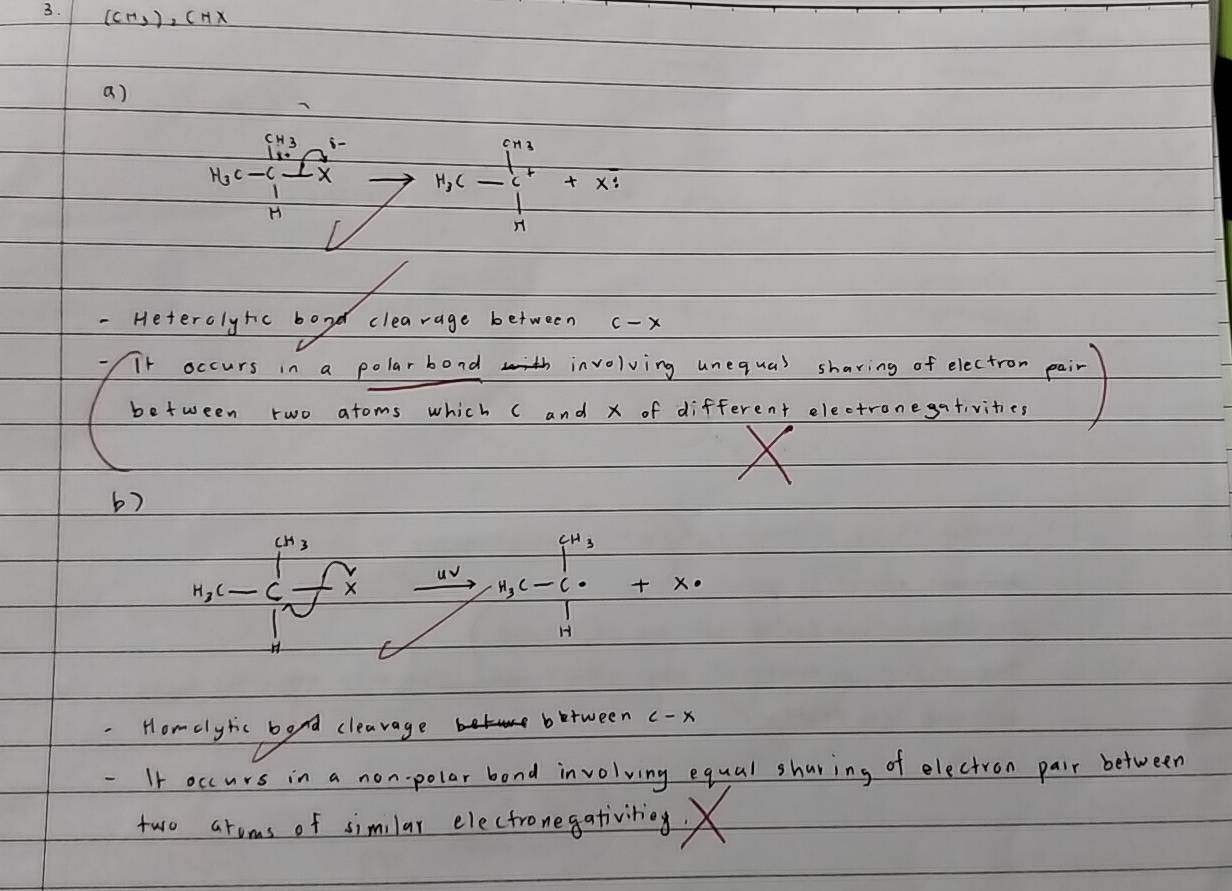 3. (CH3)2 CHX
a)
CH3 δ-
H3C - C - X → H3C - C+ + X:-
H
CH3
H
- Heterolytic bond clearage between C - X
- It occurs in a polar bond with involving unequal sharing of electron pair
between two atoms which C and X of different electronegativities
b)
CH3 CH3
H3C - C - X uv → H3C - C• + X•
H H
- Homolytic bond cleavage betwe between C - X
- It occurs in a non-polar bond involving equal sharing of electron pair between
two atoms of similar electronegativities.